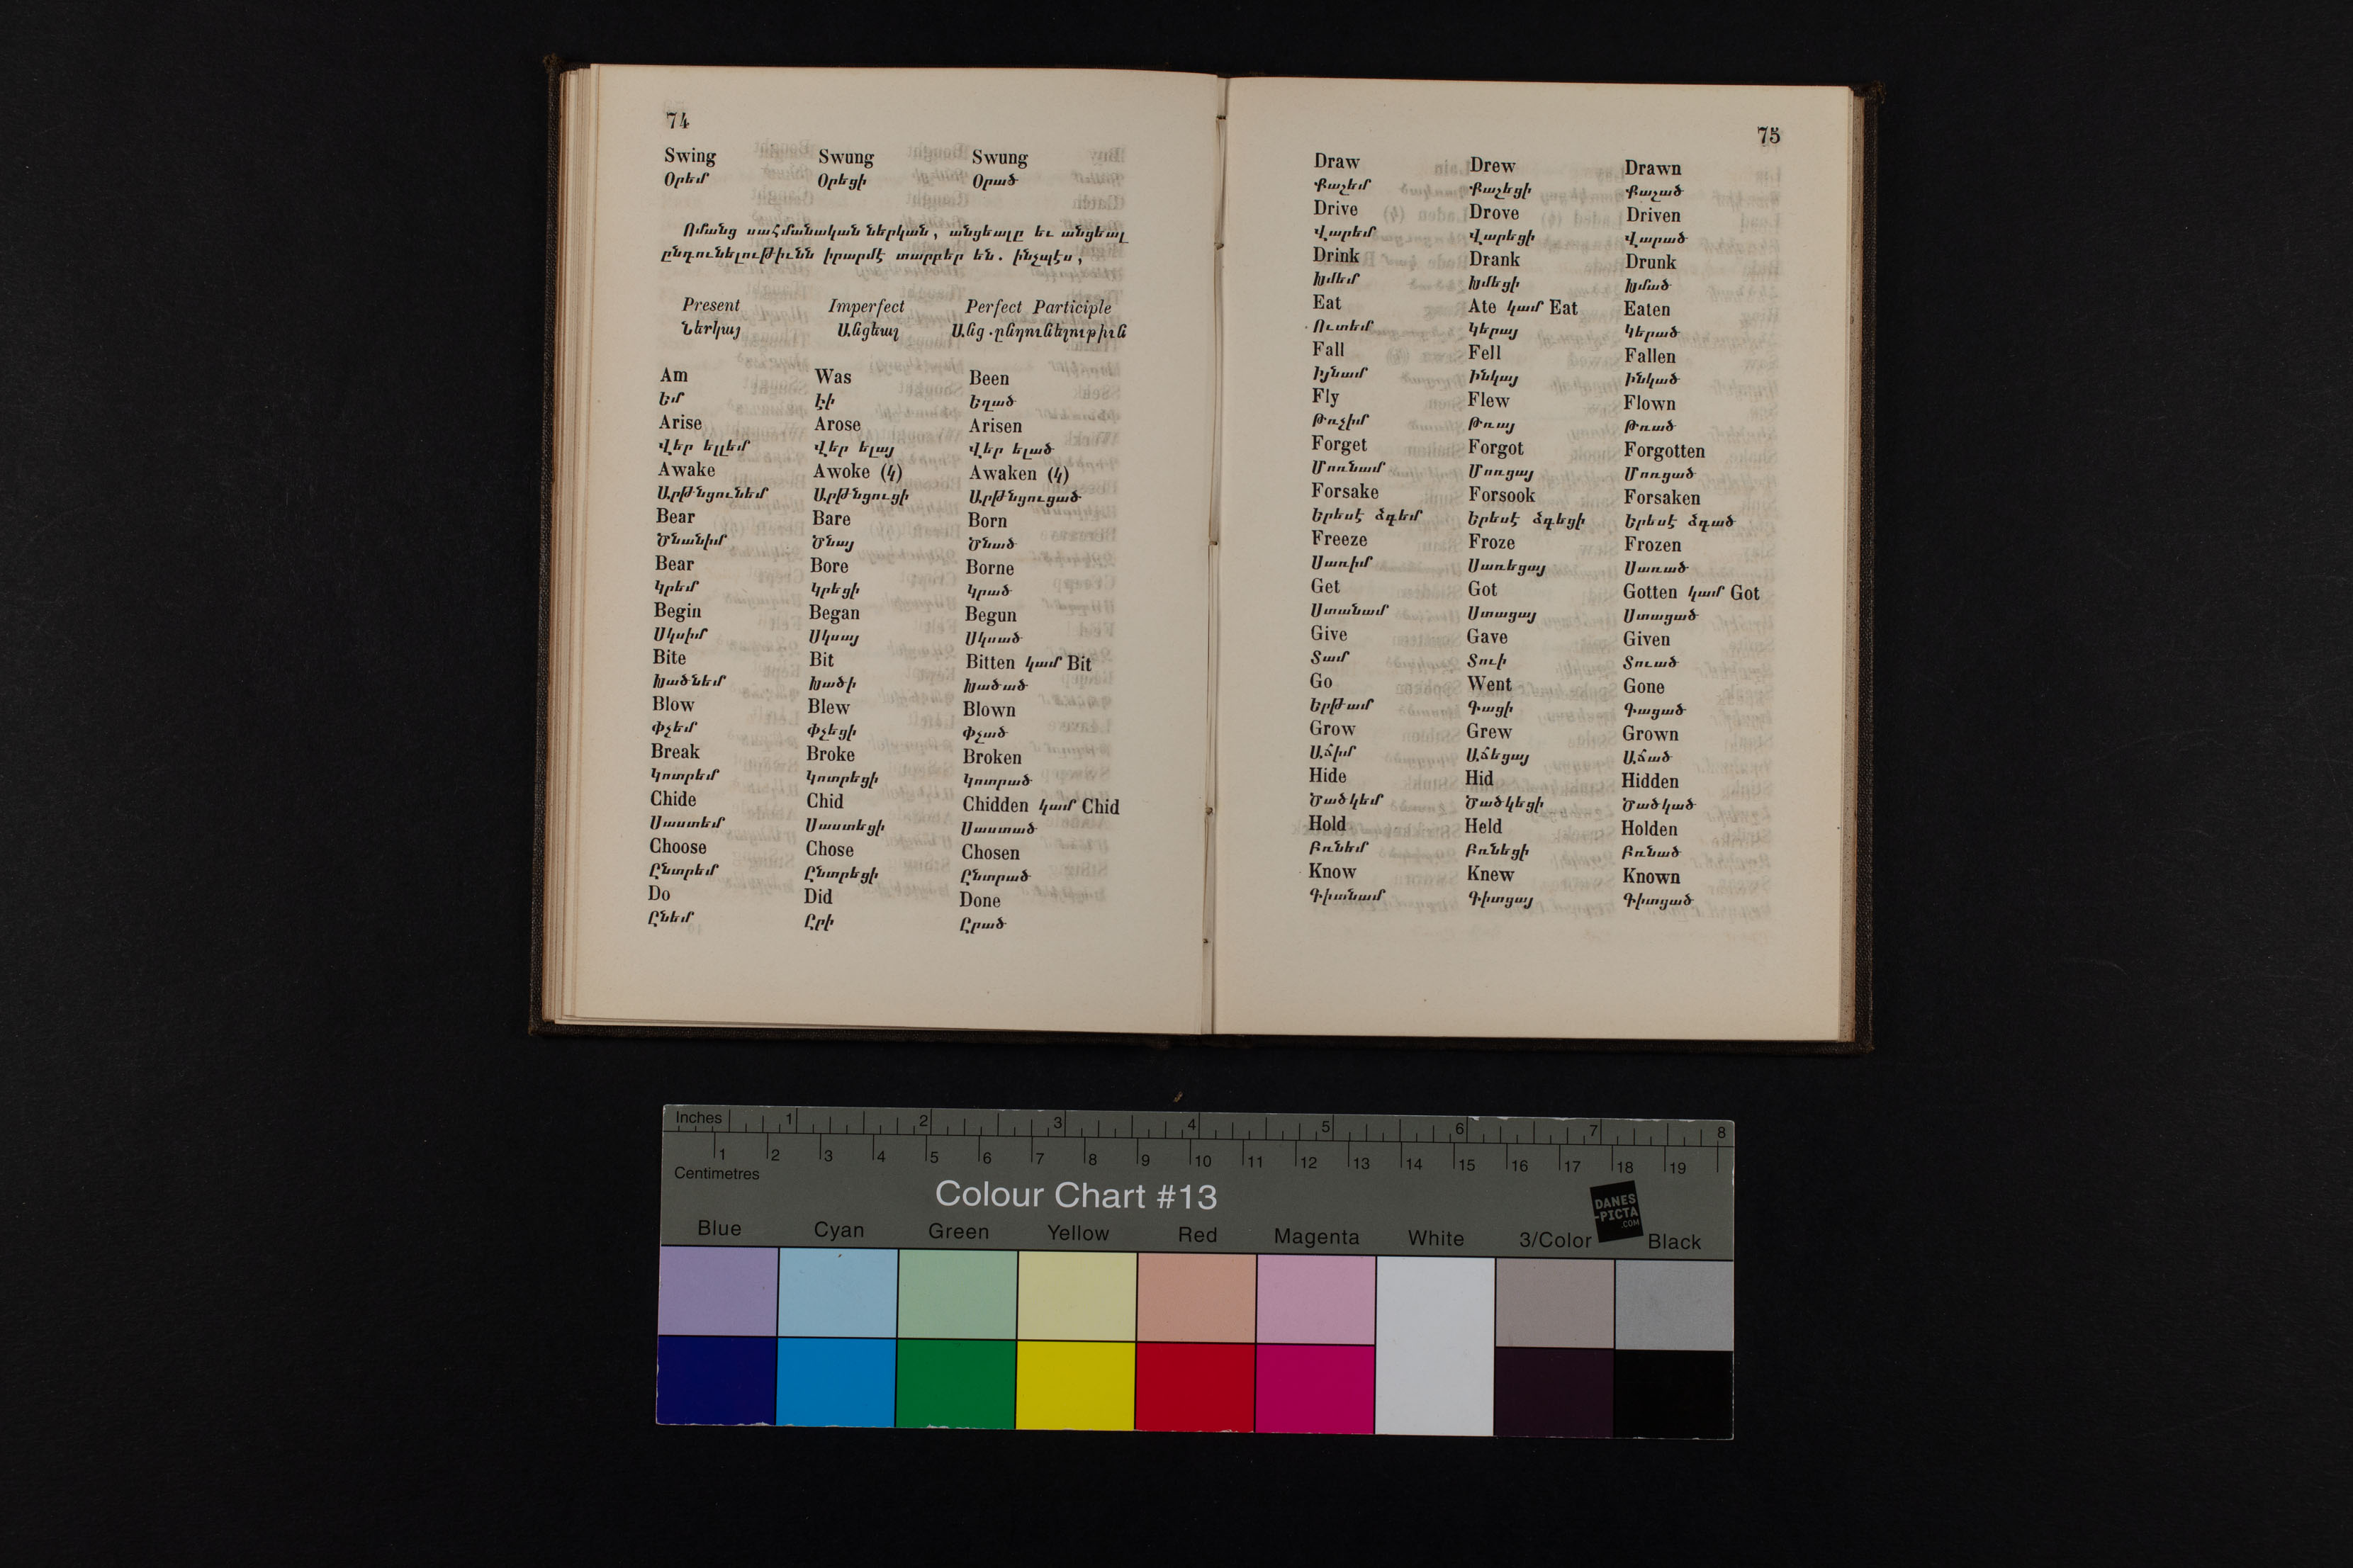 74
Swing Swung Swung
Օրեմ Օրեցի Օրած
Ոմանց սահմանական ներկան, անցեալը եւ անցեալ
ընդունելութիւնն իրարմէ տարբեր են. ինչպէս,
Present Imperfect Perfect Participle
Ներկայ Անցեալ Անց.ընդունելութիւն
Am Was Been
Եմ Էի Եղած
Arise Arose Arisen
Վեր ելլեմ Վեր ելայ Վեր ելած
Awake Awoke (կ) Awaken (կ)
Արթնցունեմ Արթնցուցի Արթնցուցած
Bear Bare Born
Ծնանիմ Ծնայ Ծնած
Bear Bore Borne
Կրեմ Կրեցի Կրած
Begin Began Begun
Սկսիմ Սկսայ Սկսած
Bite Bit Bitten կամ Bit
Խածնեմ Խածի Խածած
Blow Blew Blown
Փչեմ Փչեցի Փչած
Break Broke Broken
Կոտրեմ Կոտրեցի Կոտրած
Chide Chid Chidden կամ Chid
Սաստեմ Սաստեցի Սաստած
Choose Chose Chosen
Ընտրեմ Ընտրեցի Ընտրած
Do Did Done
Ընեմ Ըրի Ըրած
75
Draw Drew Drawn
Քաշեմ Քաշեցի Քաշած
Drive Drove Driven
Վարեմ Վարեցի Վարած
Drink Drank Drunk
Խմեմ Խմեցի Խմած
Eat Ate կամ Eat Eaten
Ուտեմ Կերայ Կերած
Fall Fell Fallen
Իյնամ Ինկայ Ինկած
Fly Flew Flown
Թռչիմ Թռայ Թռած
Forget Forgot Forgotten
Մոռնամ Մոռցայ Մոռցած
Forsake Forsook Forsaken
Երեսէ ձգեմ Երեսէ ձգեցի Երեսէ ձգած
Freeze Froze Frozen
Սառիմ Սառեցայ Սառած
Get Got Gotten կամ Got
Ստանամ Ստացայ Ստացած
Give Gave Given
Տամ Տուի Տուած
Go Went Gone
Երթամ Գացի Գացած
Grow Grew Grown
Աճիմ Աճեցայ Աճած
Hide Hid Hidden
Ծածկեմ Ծածկեցի Ծածկած
Hold Held Holden
Բռնեմ Բռնեցի Բռնած
Know Knew Known
Գիտնամ Գիտցայ Գիտցած
Inches 1 2 3 4 5 6 7 8
1 2 3 4 5 6 7 8 9 10 11 12 13 14 15 16 17 18 19
Centimetres
Colour Chart #13
DANES
-PICTA
.COM
Blue Cyan Green Yellow Red Magenta White 3/Color Black